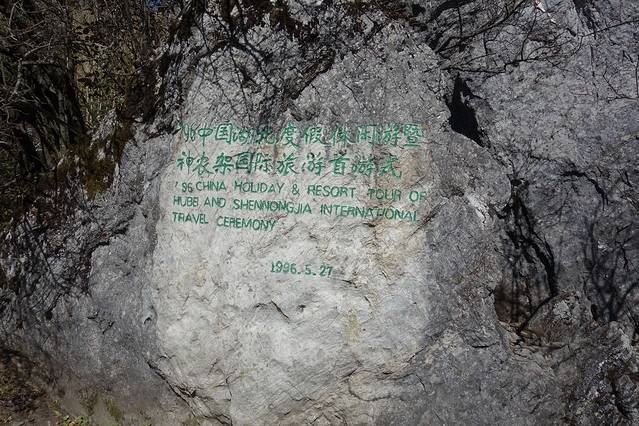 '96中国湖北度假休闲游暨
神农架国际旅游首游式
'96 CHINA HOLIDAY & RESORT TOUR OF
HUBB AND SHENNONGJIA INTERNATIONAL
TRAVEL CEREMONY
1996.5.27